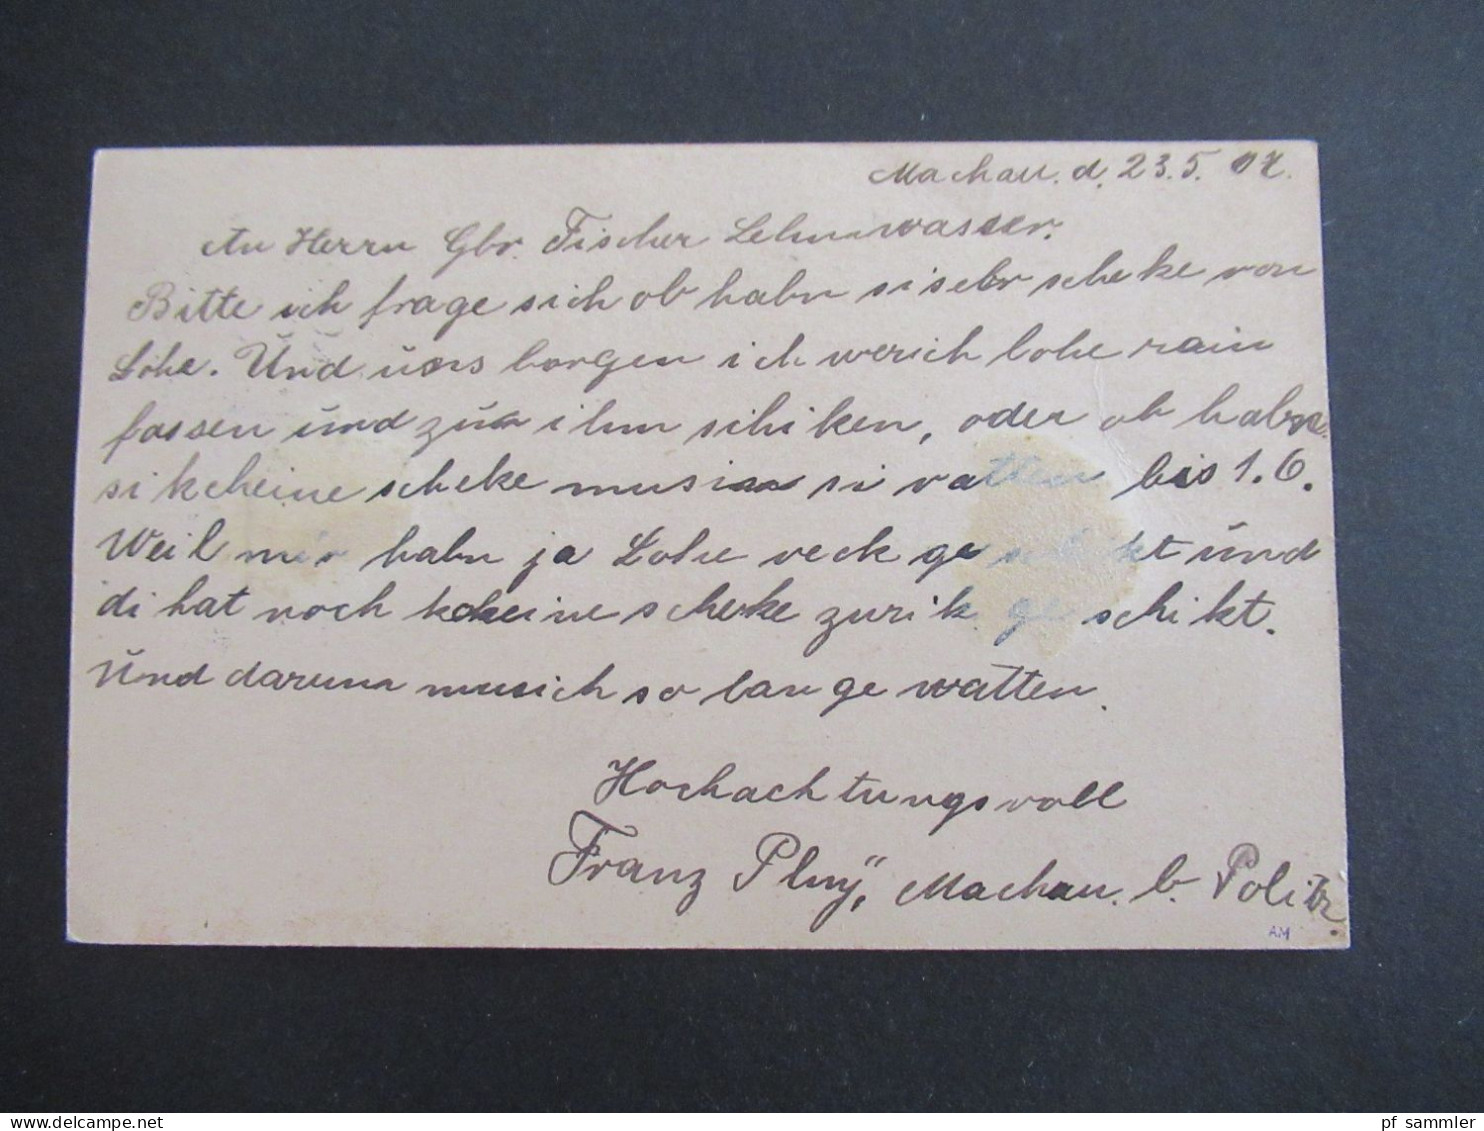 Machau. d. 23.5. 07.
An Herrn Gbr. Fischer Lehmwasser.
Bitte ich frage sich ob habn si sebr scheke von
Lohe. Und uns borgen ich werich lohe rain
fassen und zu ihm schiken, oder ob habn
si kcheine scheke mus si vatten bis 1.6.
Weil mir habn ja Lohe veck geschikt und
di hat noch kcheine scheke zurik geschikt.
Und darum musich so lange watten.
Hochachtungsvoll
Franz Plný, Machau. b. Politz.
AM
delcampe.net
pf_sammler